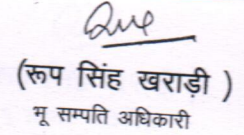 (रूप सिंह खराड़ी )
भू सम्पति अधिकारी